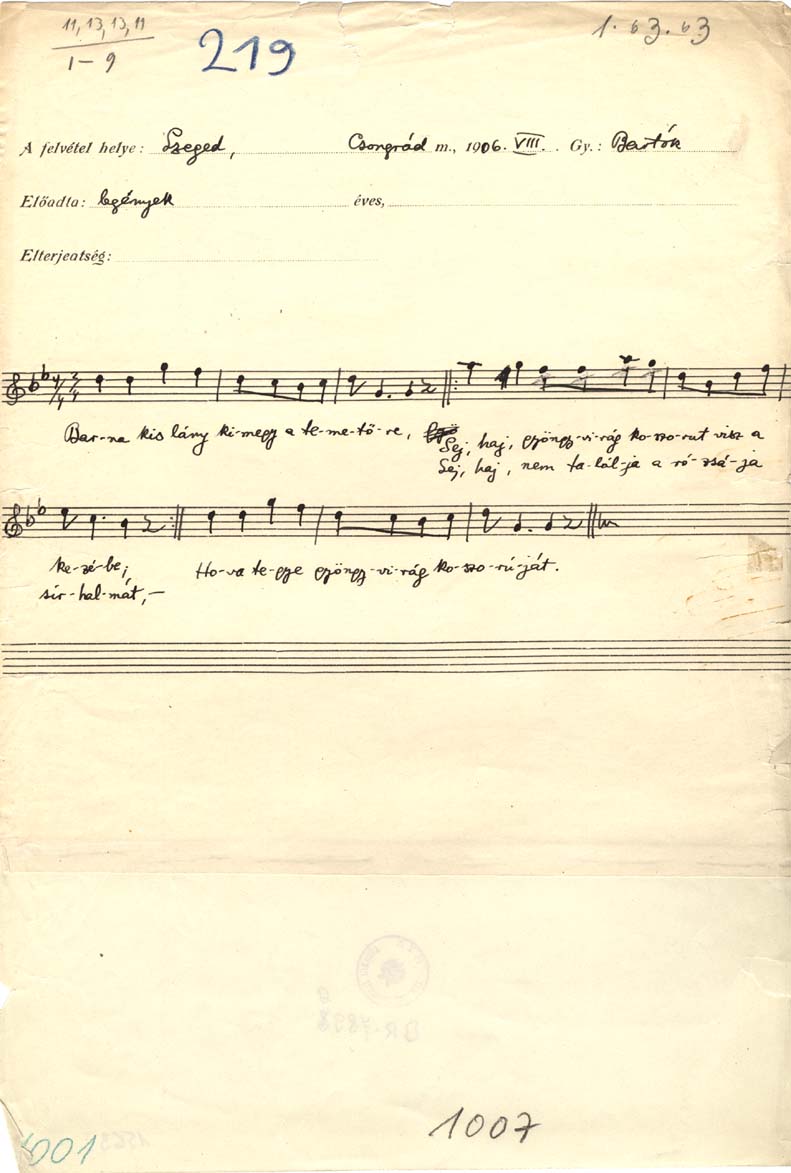 11, 13, 13, 11
1-9
219
1. 63. 63
A felvétel helye: Szeged, Csongrád m., 1906. VIII. Gy.: Bartók
Előadta: legények éves,
Elterjedtség:
Bar-na kis lány ki-megy a te-me-tő-re, Sej, haj, gyöngy-vi-rág ko-szo-rut visz a
Sej, haj, nem ta-lál-ja a ró-zsá-ja
ke-zé-be; Ho-va te-gye gyöngy-vi-rág ko-szo-rú-ját.
sír-hal-mát,-
1007
001